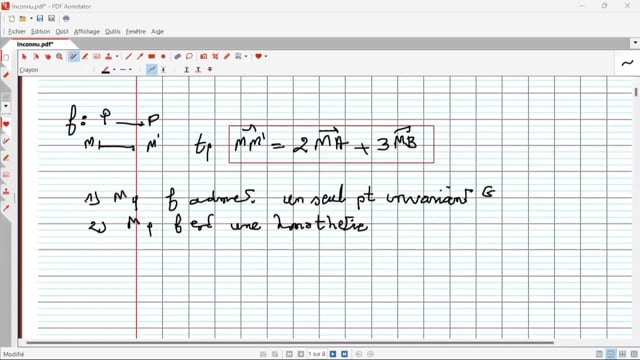 Inconnu.pdf* - PDF Annotator
Fichier Edition Affichage Document Outils Fenêtre Aide
Inconnu.pdf*
Crayon
f: P → P
M ⟼ M' tq MM' = 2 MA + 3 MB
1) Mq f admet un seul pt invariant G
2) Mq f est une homothétie
Modifié 1 sur 8